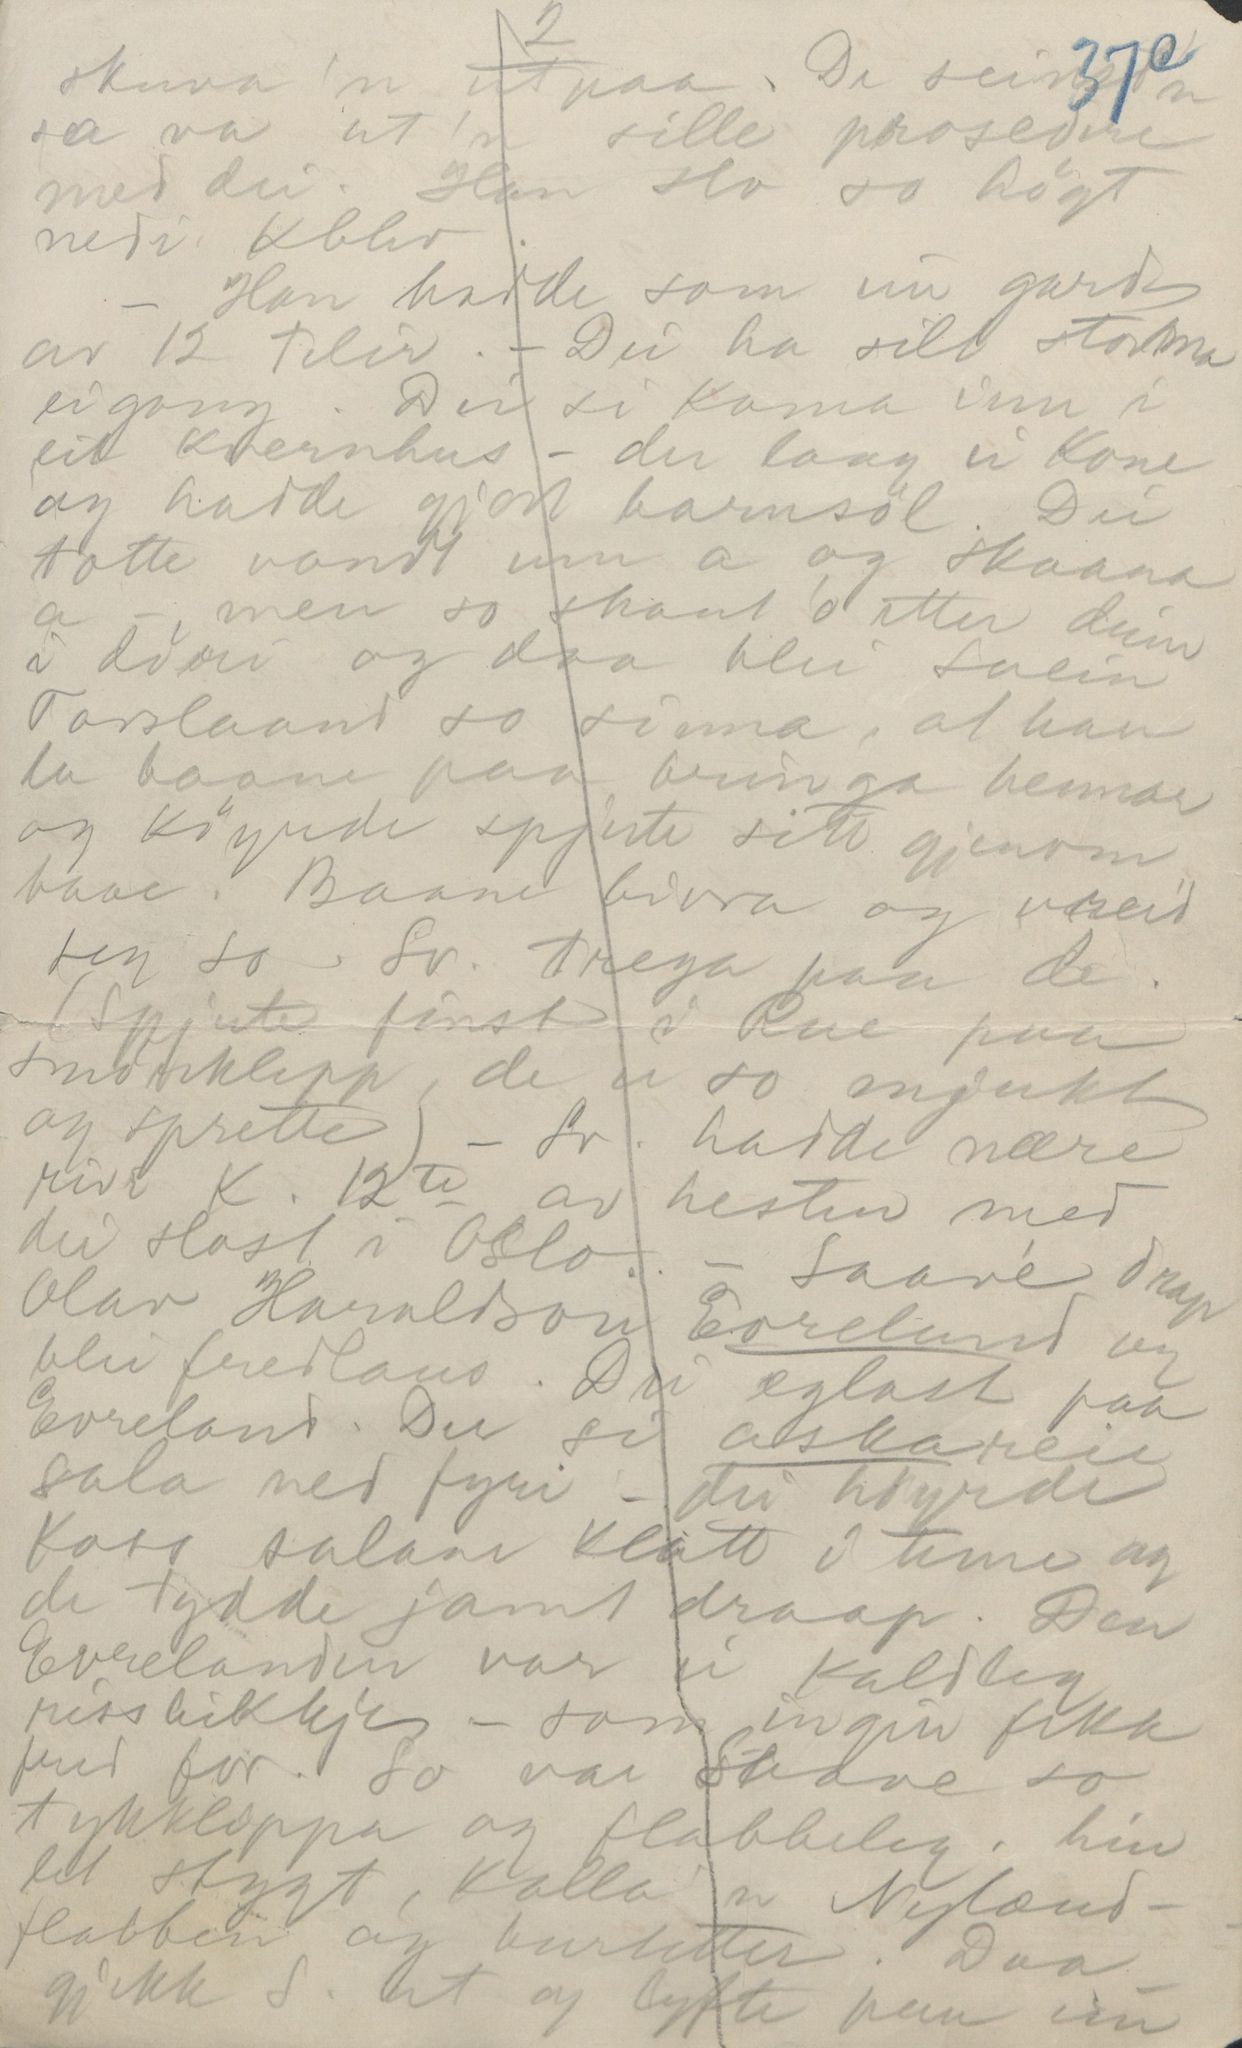 2
37e
skuva 'n utpaa. De
sa va ut'n sille prosedire
med dei. Han slo so högt
nedi
– Han hadde som ein gards
av 12 – Dei ha vilt storma
eigong. Dei si koma inn i
eit kvernhus – der laag ei kone
og hadde gjort barnsöl. Dei
totte vondt um a og skaana
a –, men so skaut 'o etter deim
i döri og daa blei Svein
Torslaand so sinna, at han
la baane paa bringa hennar
og köyrde spjute sitt gjenom
baae. Baane bivra og vreid
seg so. Sv. trega paa de.
(Spjute finst i Rue paa
smörklepp, de u so mjukt
og sprette) – Sv. hadde nære
rive K. 12te av hesten med
dei slost i Oslo. – Saave drap
Olav Haraldson Evreland og
blei fredlaus. Dei eglast paa
Evreland. Dei si askareie
sala ned fyri – dei höyrde
koss salane klatt i tune og
de tydde jamt draap. Den
Evrelanden var ei kaldleg
rissbikkje – som ingin fekk
fred for. So var Saave so
tykkleppa og flabbeleg, hin
let stygt, kalla 'n Nylænd-
flabben og burtetter. Daa
gjekk S. ut og lyfte paa ein